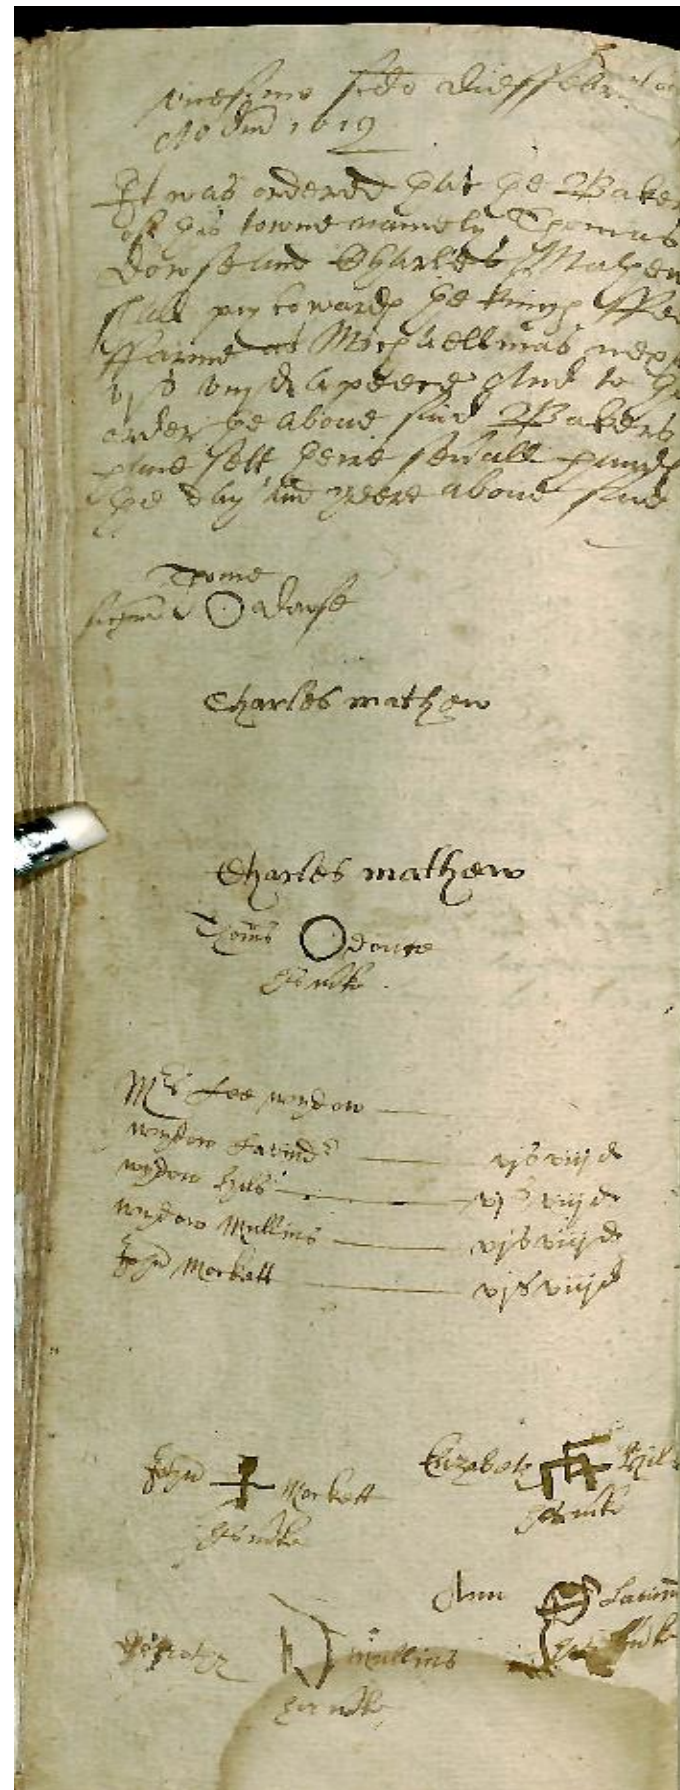 vicesimo s[e]c[un]do die ffebr
Ao Dni 1619
It was ordered that the Baker
of this towne namely Thomas
Dowse and Charles
shall pay towards the kings ffee
ffarme at Michaellmas next
vjs viijd a peece And to
order the above said Bakers
have sett here severall hands
the day and yeere above said
Thome
signum O dowse
Charles mathew
Charles mathew
Thoms O douse
his mke
Mrs Lee wydow
wydow Lavind —— vjs viijd
wydow hills —— vjs viijd
wydow Mullins —— vjs viijd
John Morkatt —— vjs viijd
John Morkatt
his mke
Elizabeth Hil
her mke
Ann Lavin
her mke
mullins
her mke